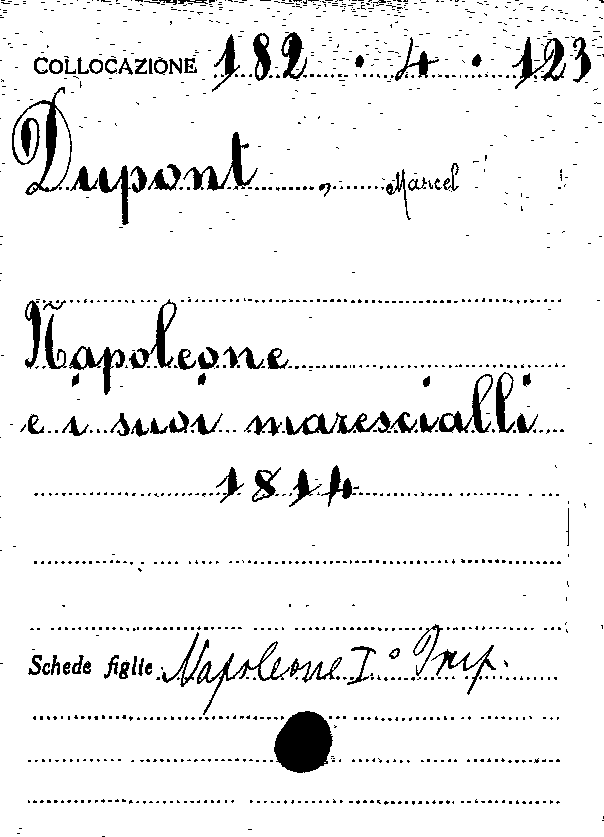 COLLOCAZIONE 182 · 4 · 123
Dupont, Marcel
Napoleone
e i suoi marescialli
1814
Schede figlie Napoleone I° Imp.